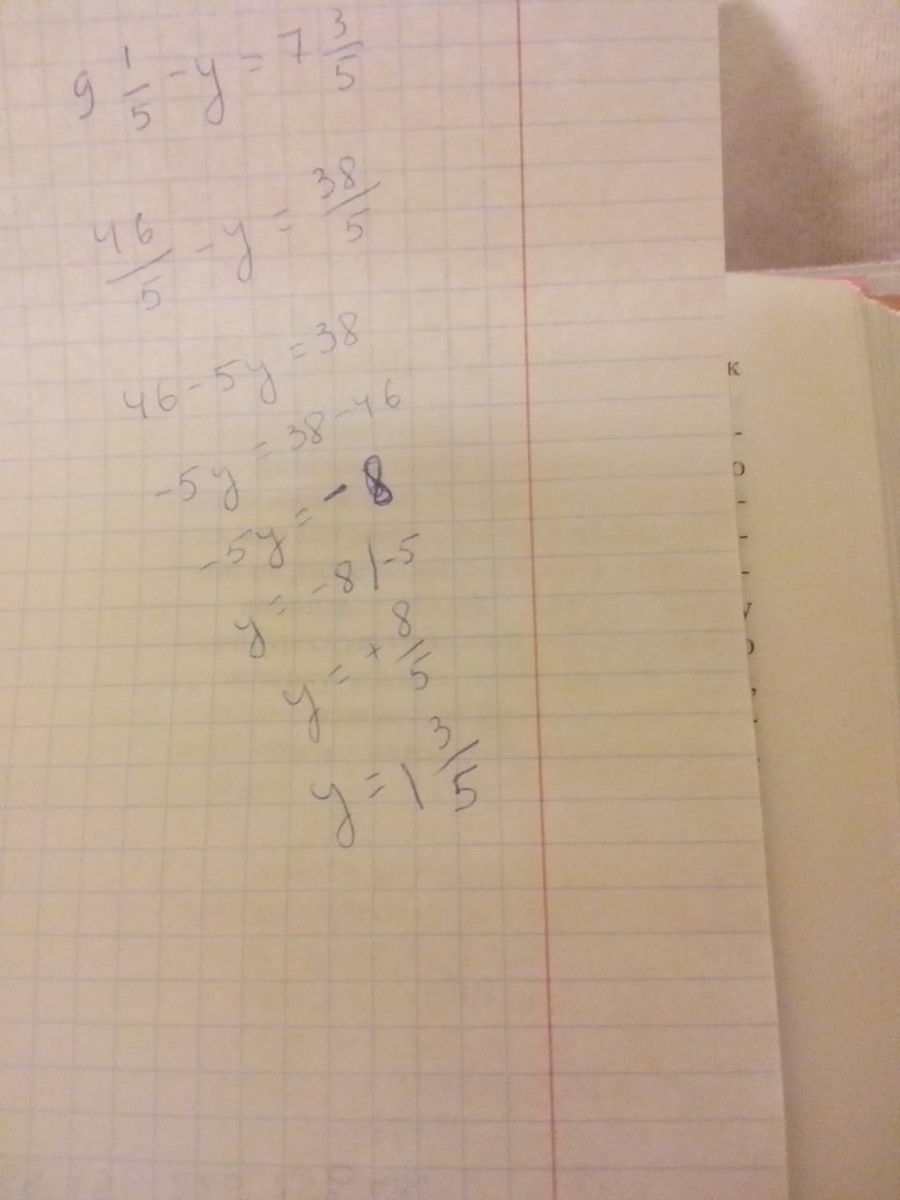 9 1/5 - y = 7 3/5
46/5 - y = 38/5
46 - 5y = 38
-5y = 38 - 46
-5y = -8
y = -8 | -5
y = + 8/5
y = 1 3/5
к